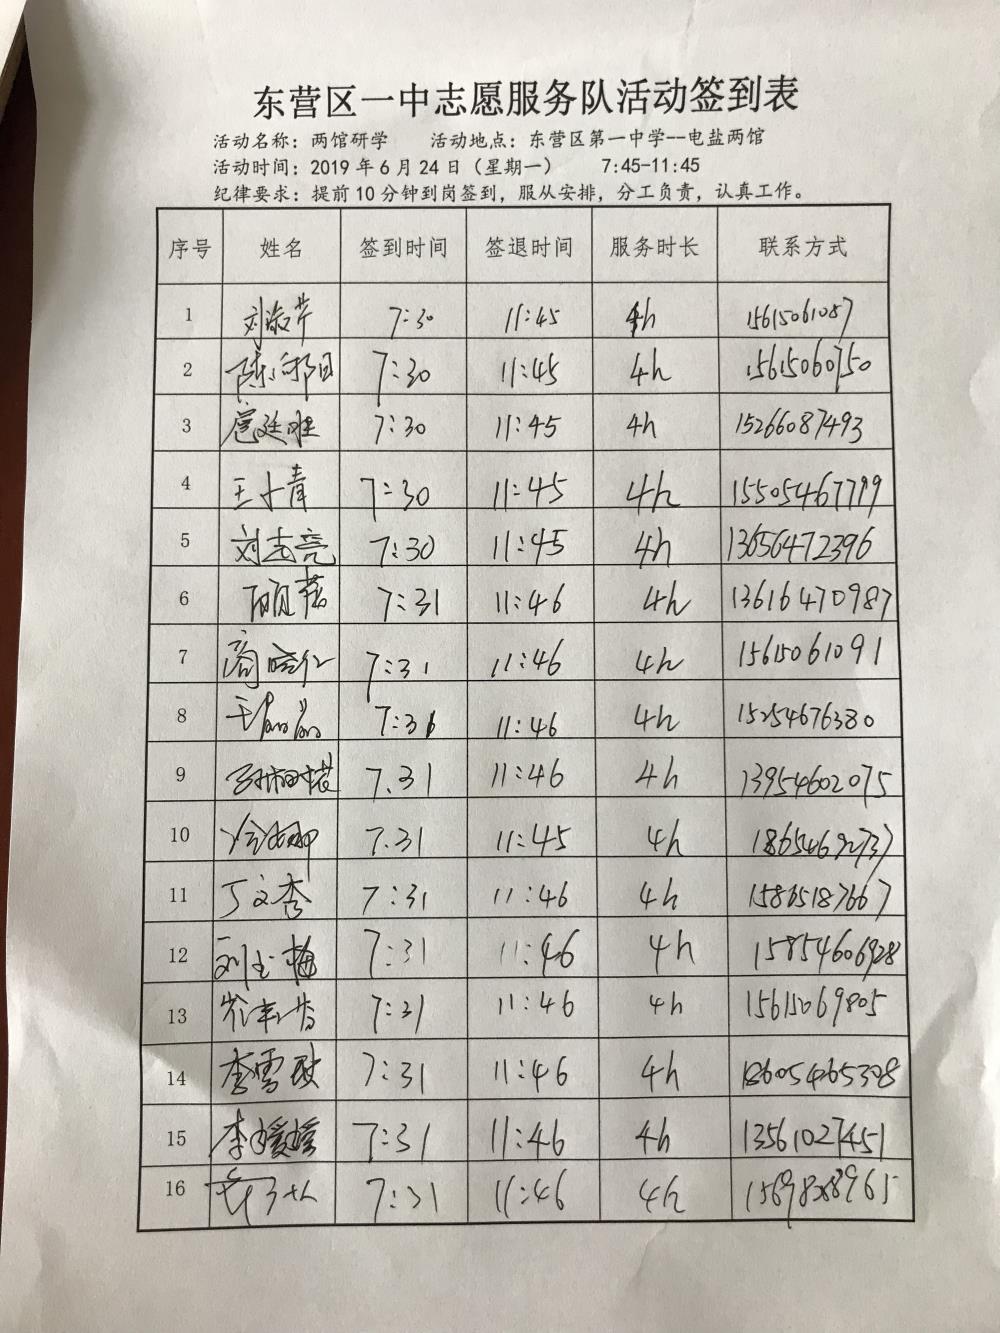 东营区一中志愿服务队活动签到表
活动名称：两馆研学 活动地点：东营区第一中学--电盐两馆
活动时间：2019年6月24日（星期一） 7:45-11:45
纪律要求：提前10分钟到岗签到，服从安排，分工负责，认真工作。
序号 姓名 签到时间 签退时间 服务时长 联系方式
1 刘淑芹 7:30 11:45 4h 15615061087
2 7:30 11:45 4h 15615060750
3 7:30 11:45 4h 15266087493
4 王小青 7:30 11:45 4h 15505467799
5 刘志亮 7:30 11:45 4h 13656472396
6 7:31 11:46 4h 13616470987
7 7:31 11:46 4h 15615061091
8 王晶晶 7:31 11:46 4h 15254676380
9 7.31 11:46 4h 13954602075
10 徐娜娜 7.31 11:45 4h 18654692737
11 丁文秀 7:31 11:46 4h 15865187667
12 刘玉梅 7:31 11:46 4h 15854606928
13 7:31 11:46 4h 15615069805
14 李雪玲 7:31 11:46 4h
15 李媛媛 7:31 11:46 4h 13561027451
16 7:31 11:46 4h